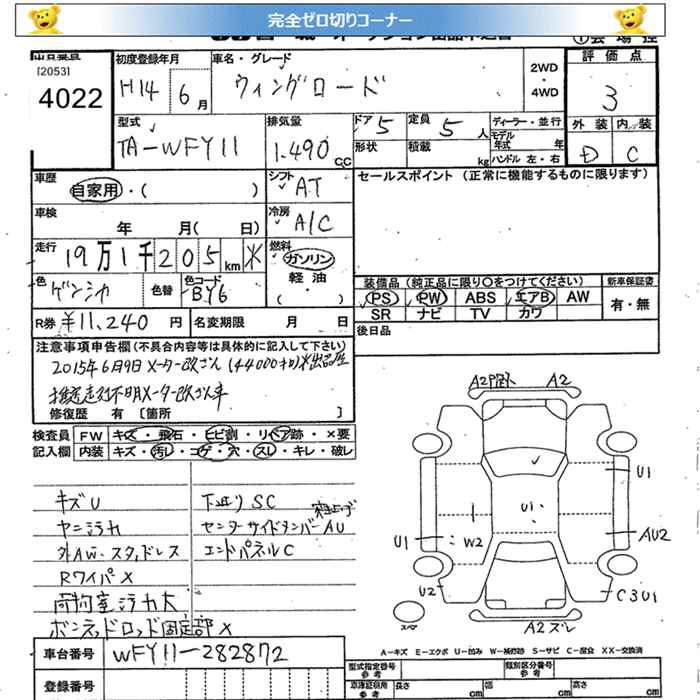 完全ゼロ切りコーナー
[2053]
4022
初度登録年月
H14 6月
車名・グレード
ウィングロード
2WD
・
4WD
評価点
3
型式
TA-WFY11
排気量
1.490 CC
ドア 5
形状
定員 5人
積載 kg
ディーラー・並行
モデル年式 年
ハンドル 左・右
外装 内装
D C
車歴
自家用・( )
シフト
AT
セールスポイント (正常に機能するものに限ります)
車検
年 月( 日)
冷房
A/C
走行
19万1千205km
燃料
ガソリン
軽油
( ・ )
色
ゲンシャ
色替
色コード
BY6
装備品 (純正品に限り○をつけてください)
新車保証書
PS PW ABS エアB AW
有・無
SR ナビ TV カワ
R券 ¥11,240 円
名変期限 月 日
後日品
注意事項申告欄(不具合内容等は具体的に記入して下さい)
2015年6月9日メーター改ざん
不明メーター改ざん車
修復歴 有 [箇所 ]
検査員記入欄
FW キズ・飛石・ヒビ割・リペア跡・×要
内装 キズ・汚レ・コゲ・穴・スレ・キレ・破レ
キズU
ヤニ汚れ
外AW・スタッドレス
Rワイパー×
荷物室汚れ大
ボンネットロッド固定部×
下廻りSC
センターサイドメンバーAU
エンドパネルC
A2 A2
U1
U1
AU2
U1
W2
U2
C3U1
A2ズレ
スペア
A-キズ E-エクボ U-凹み W-補修跡 S-サビ C-腐食 XX-交換済
車台番号 WFY11-282872
登録番号
型式指定番号
参考
類別区分番号
参考
車庫証明用
参考
長さ cm
幅 cm
高さ cm